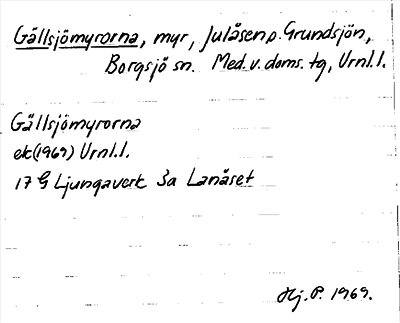 Gällsjömyrorna, myr, Julåsen o. Grundsjön,
Borgsjö sn. Med. v. doms. tg, Urnl. l.
Gällsjömyrorna
ek (1969) Urnl. l.
17 G Ljungaverk 3a Lanåset
Hj. P. 1969.